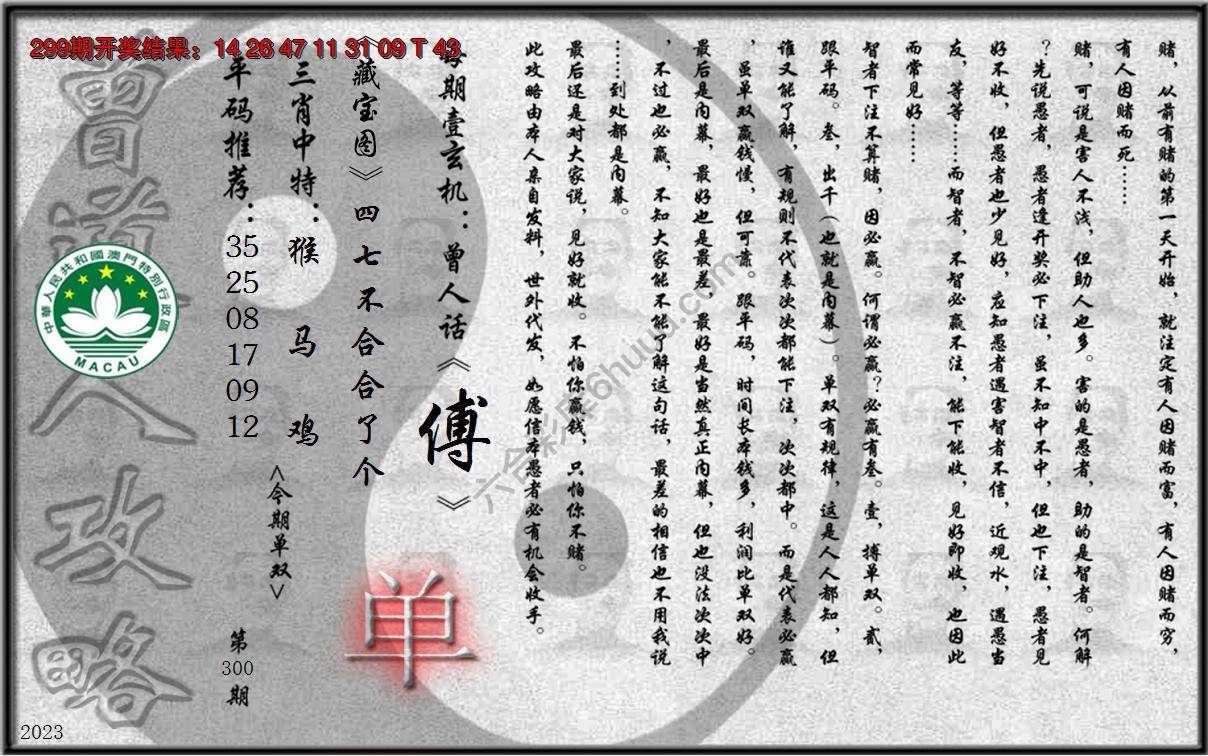 299期开奖结果：14 26 47 11 31 09 T 43
赌，从前有赌的第一天开始，就注定有人因赌而富，有人因赌而穷，
有人因赌而死……
赌，可说是害人不浅，但助人也多。害的是愚者，助的是智者。何解
？先说愚者，愚者逢开奖必下注，虽不知中不中，但也下注，愚者见
好不收，但愚者也少见好，应知愚者遇害智者不信，近观水，遇愚当
友，等等……而智者，不智必赢不注，能下能收，见好即收，也因此
而常见好……
智者下注不算赌，因必赢。何谓必赢？必赢有叁。壹，搏单双。贰，
跟平码。叁，出千（也就是内幕）。单双有规律，这是人人都知，但
谁又能了解，有规则不代表次次都能下注，次次都中。而是代表必赢
，虽单双赢钱慢，但可靠。跟平码，时间长本钱多，利润比单双好。
最后是内幕，最好也是最差，最好是当然真正内幕，但也没法次次中
，不过也必赢，不知大家能不能了解这句话，最差的相信也不用我说
……到处都是内幕。
最后还是对大家说，见好就收。不怕你赢钱，只怕你不赌。
此攻略由本人亲自发料，世外代发，如愿信本愚者必有机会收手。
每期壹玄机：曾人话《傅》
《藏宝图》四七不合合了个
单
三肖中特：猴 马 鸡
<今期单双>
平码推荐：35 25 08 17 09 12
第300期
曾道人攻略
中華人民共和國澳門特別行政區
MACAU
六合彩库6huuu.com
2023